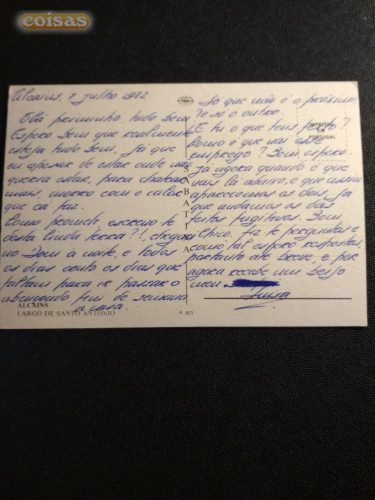 coisas
Alcains, 7 julho 1982
Olá priminho tudo bem
Espero bem que realmente
esteja tudo bem, já que
eu apesar de estar onde não
queria estar, para chatear
mais, morro com o calor
que cá faz.
Como prometi, escrevo-te
desta linda terra?!, cheguei
no Dom à noite, e todos
os dias conto os dias que
faltam para se passar o
abençoado fim de semana
a casa.
ALCAINS
LARGO DE SANTO ANTÓNIO
SABATINA
P. 823
PORTUGAL
Só que não é o próximo,
é só o outro.
E tu o que tens feito?
Como é que vai esse
emprego? Bem espero.
Já agora quando é que
vais lá abaixo, é que nunca
aparecemos os dois, já
que andamos os dois
fugitivos. Bem,
Chico. Fiz-te perguntas e
como tal espero respostas,
portanto até breve, e por
agora recebe um beijo
meu
Luisa